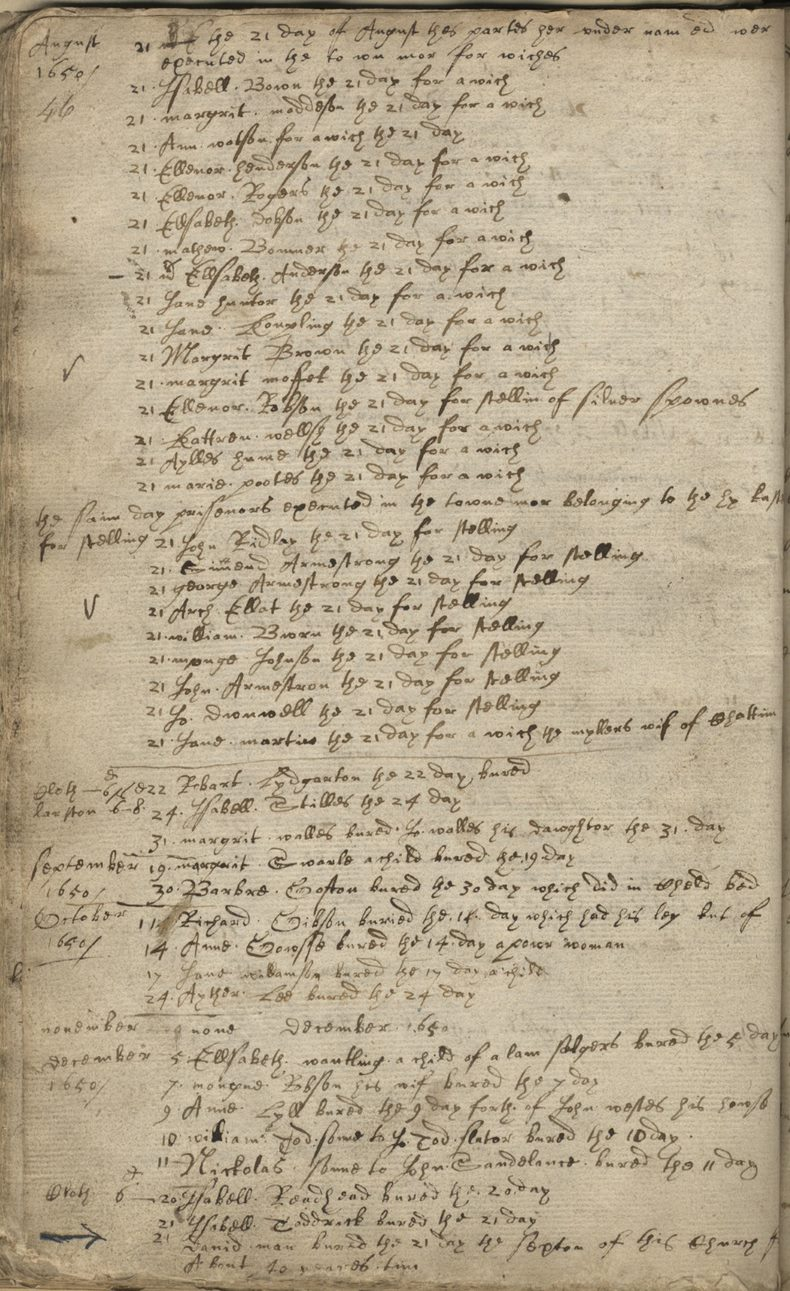 August 21 the 21 day of August thes partes her under nam ed wer
1650 executed in the to wn mor for wiches
46 21 Isibell Bown the 21 day for a wich
21 margrit maddeson the 21 day for a wich
21 Ann watson for a wich the 21 day
21 Ellenor henderson the 21 day for a wich
21 Ellenor Rogers the 21 day for a wich
21 Elsabeth dobson the 21 day for a wich
21 mathew Bonmer the 21 day for a wich
21 Ellsabeth Anderson the 21 day for a wich
21 Jane huntor the 21 day for a wich
21 Jane Koupling the 21 day for a wich
21 Margrit Brown the 21 day for a wich
21 margrit moffet the 21 day for a wich
21 Ellenor Robson the 21 day for stellin of silver spownes
21 Kattren wellsh the 21 day for a wich
21 Aylles hume the 21 day for a wich
21 marie pootes the 21 day for a wich
the saim day prissenors executed in the towne mor belonging to the hy kast
for stelling 21 John Ridlay the 21 day for stelling
21 Armestrong the 21 day for stelling
21 george Armestrong the 21 day for stelling
21 Arch Ellat the 21 day for stelling
21 william the 21 day for stelling
21 Johnson the 21 day for stelling
21 John Armestron the 21 day for stelling
21 Jo the 21 day for stelling
21 Jane martin the 21 day for a wich the myllers wif of Chattim
22 Robart the 22 day bured
24 Isabell Stilles the 24 day
31 margrit walles bured Jo walles his dawghtor the 31 day
September 19 margrit a child bured the 19 day
1650 30 Barbre Crofton bured the 30 day which did in Cheld bed
October Richard Gibson buried the day which had his leg kut of
1650 14 Anne bured the 14 day a power woman
17 Jane bured the 17 day a child
24 Lee bured the 24 day
november none december 1650
december 5 Ellsabeth wantling a child of a lam bured the 5 day
1650 7 Robson his wif bured the 7 day
9 Anne Lyll bured the 9 day forth of John westes his howse
10 william Tod sonne to Jo Tod slator bured the 10 day
11 Nickolas sonne to John Sandelance bured the 11 day
20 Isabell Readhead bured the 20 day
21 Isibell Toddrick bured the 21 day
21 david man bured the 21 day the sexton of this Church
About yeares